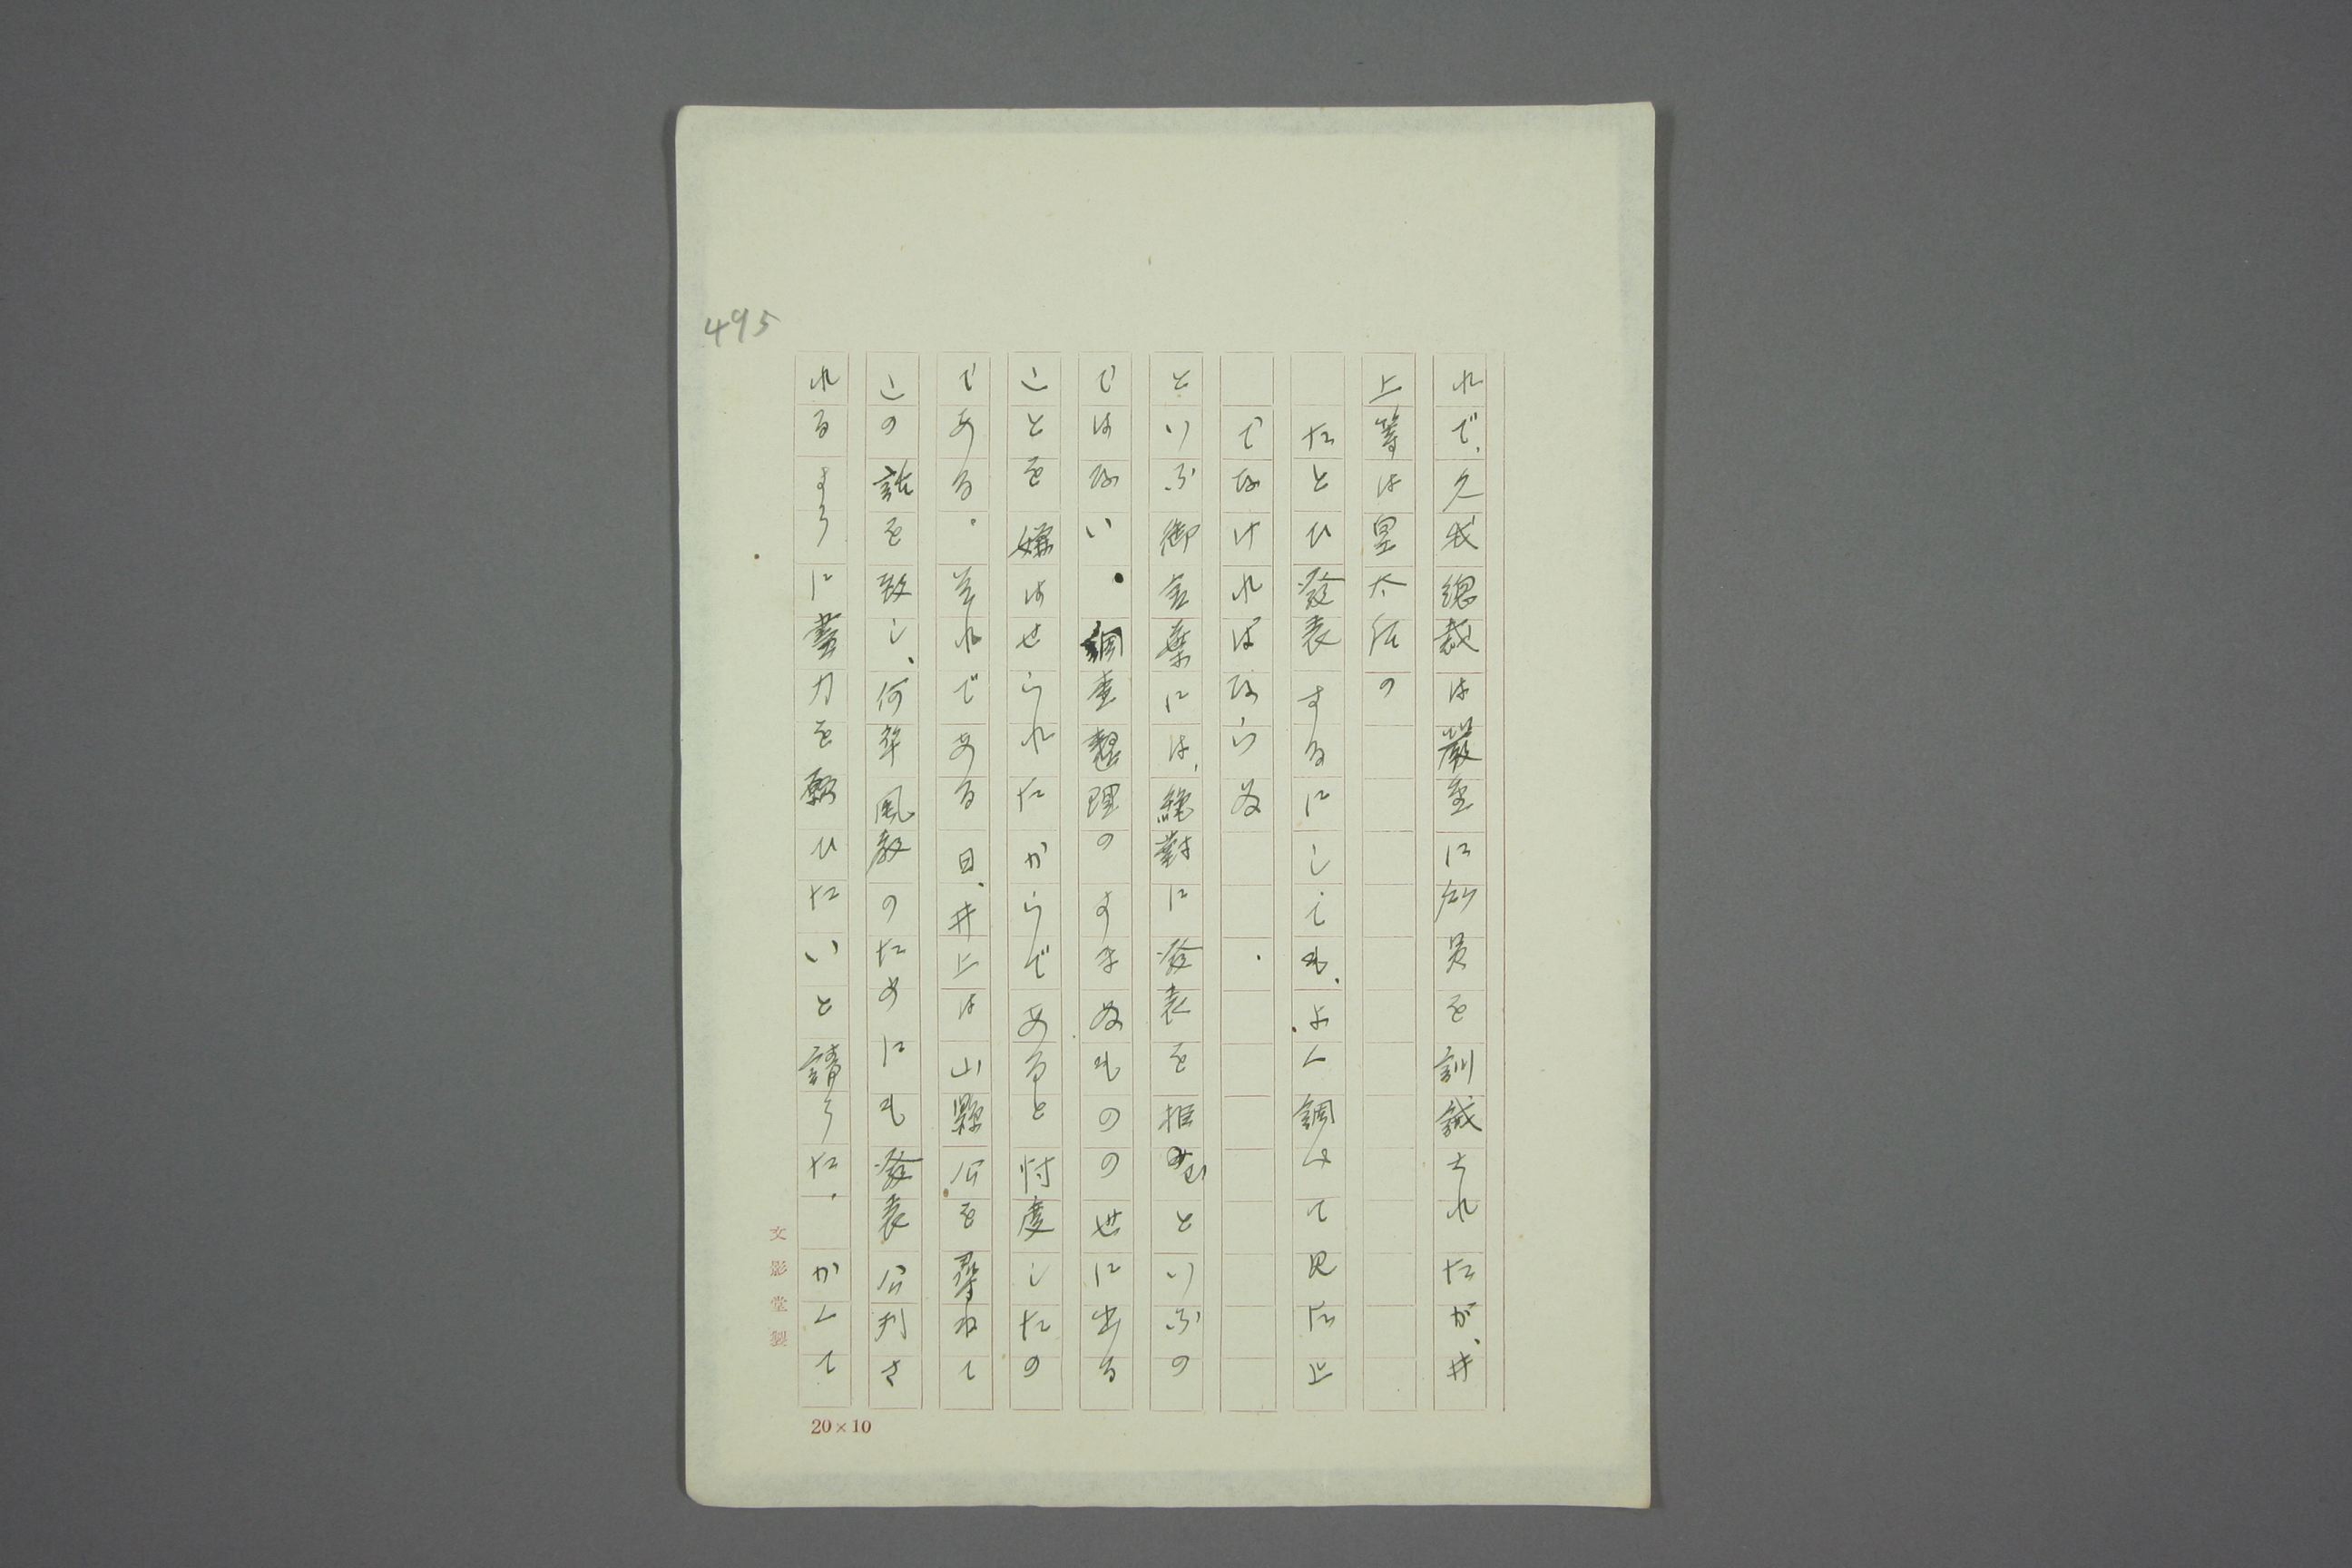 495
れで、久我總裁は嚴重に所員を訓誡されたが、井
上等は皇太后の
たとひ發表するにしても、よく調べて見た上
でなければならぬ.
といふ御言葉には、絶對に發表を拒むといふの
ではない。調査整理のすまぬものの世に出る
ことを嫌はせられたからであると忖度したの
である。それである日、井上は山縣公を尋ねて
この話を致し、何卒風教のためにも發表公刊さ
れるように盡力を願ひたいと請うた。かくて
文影堂製
20×10